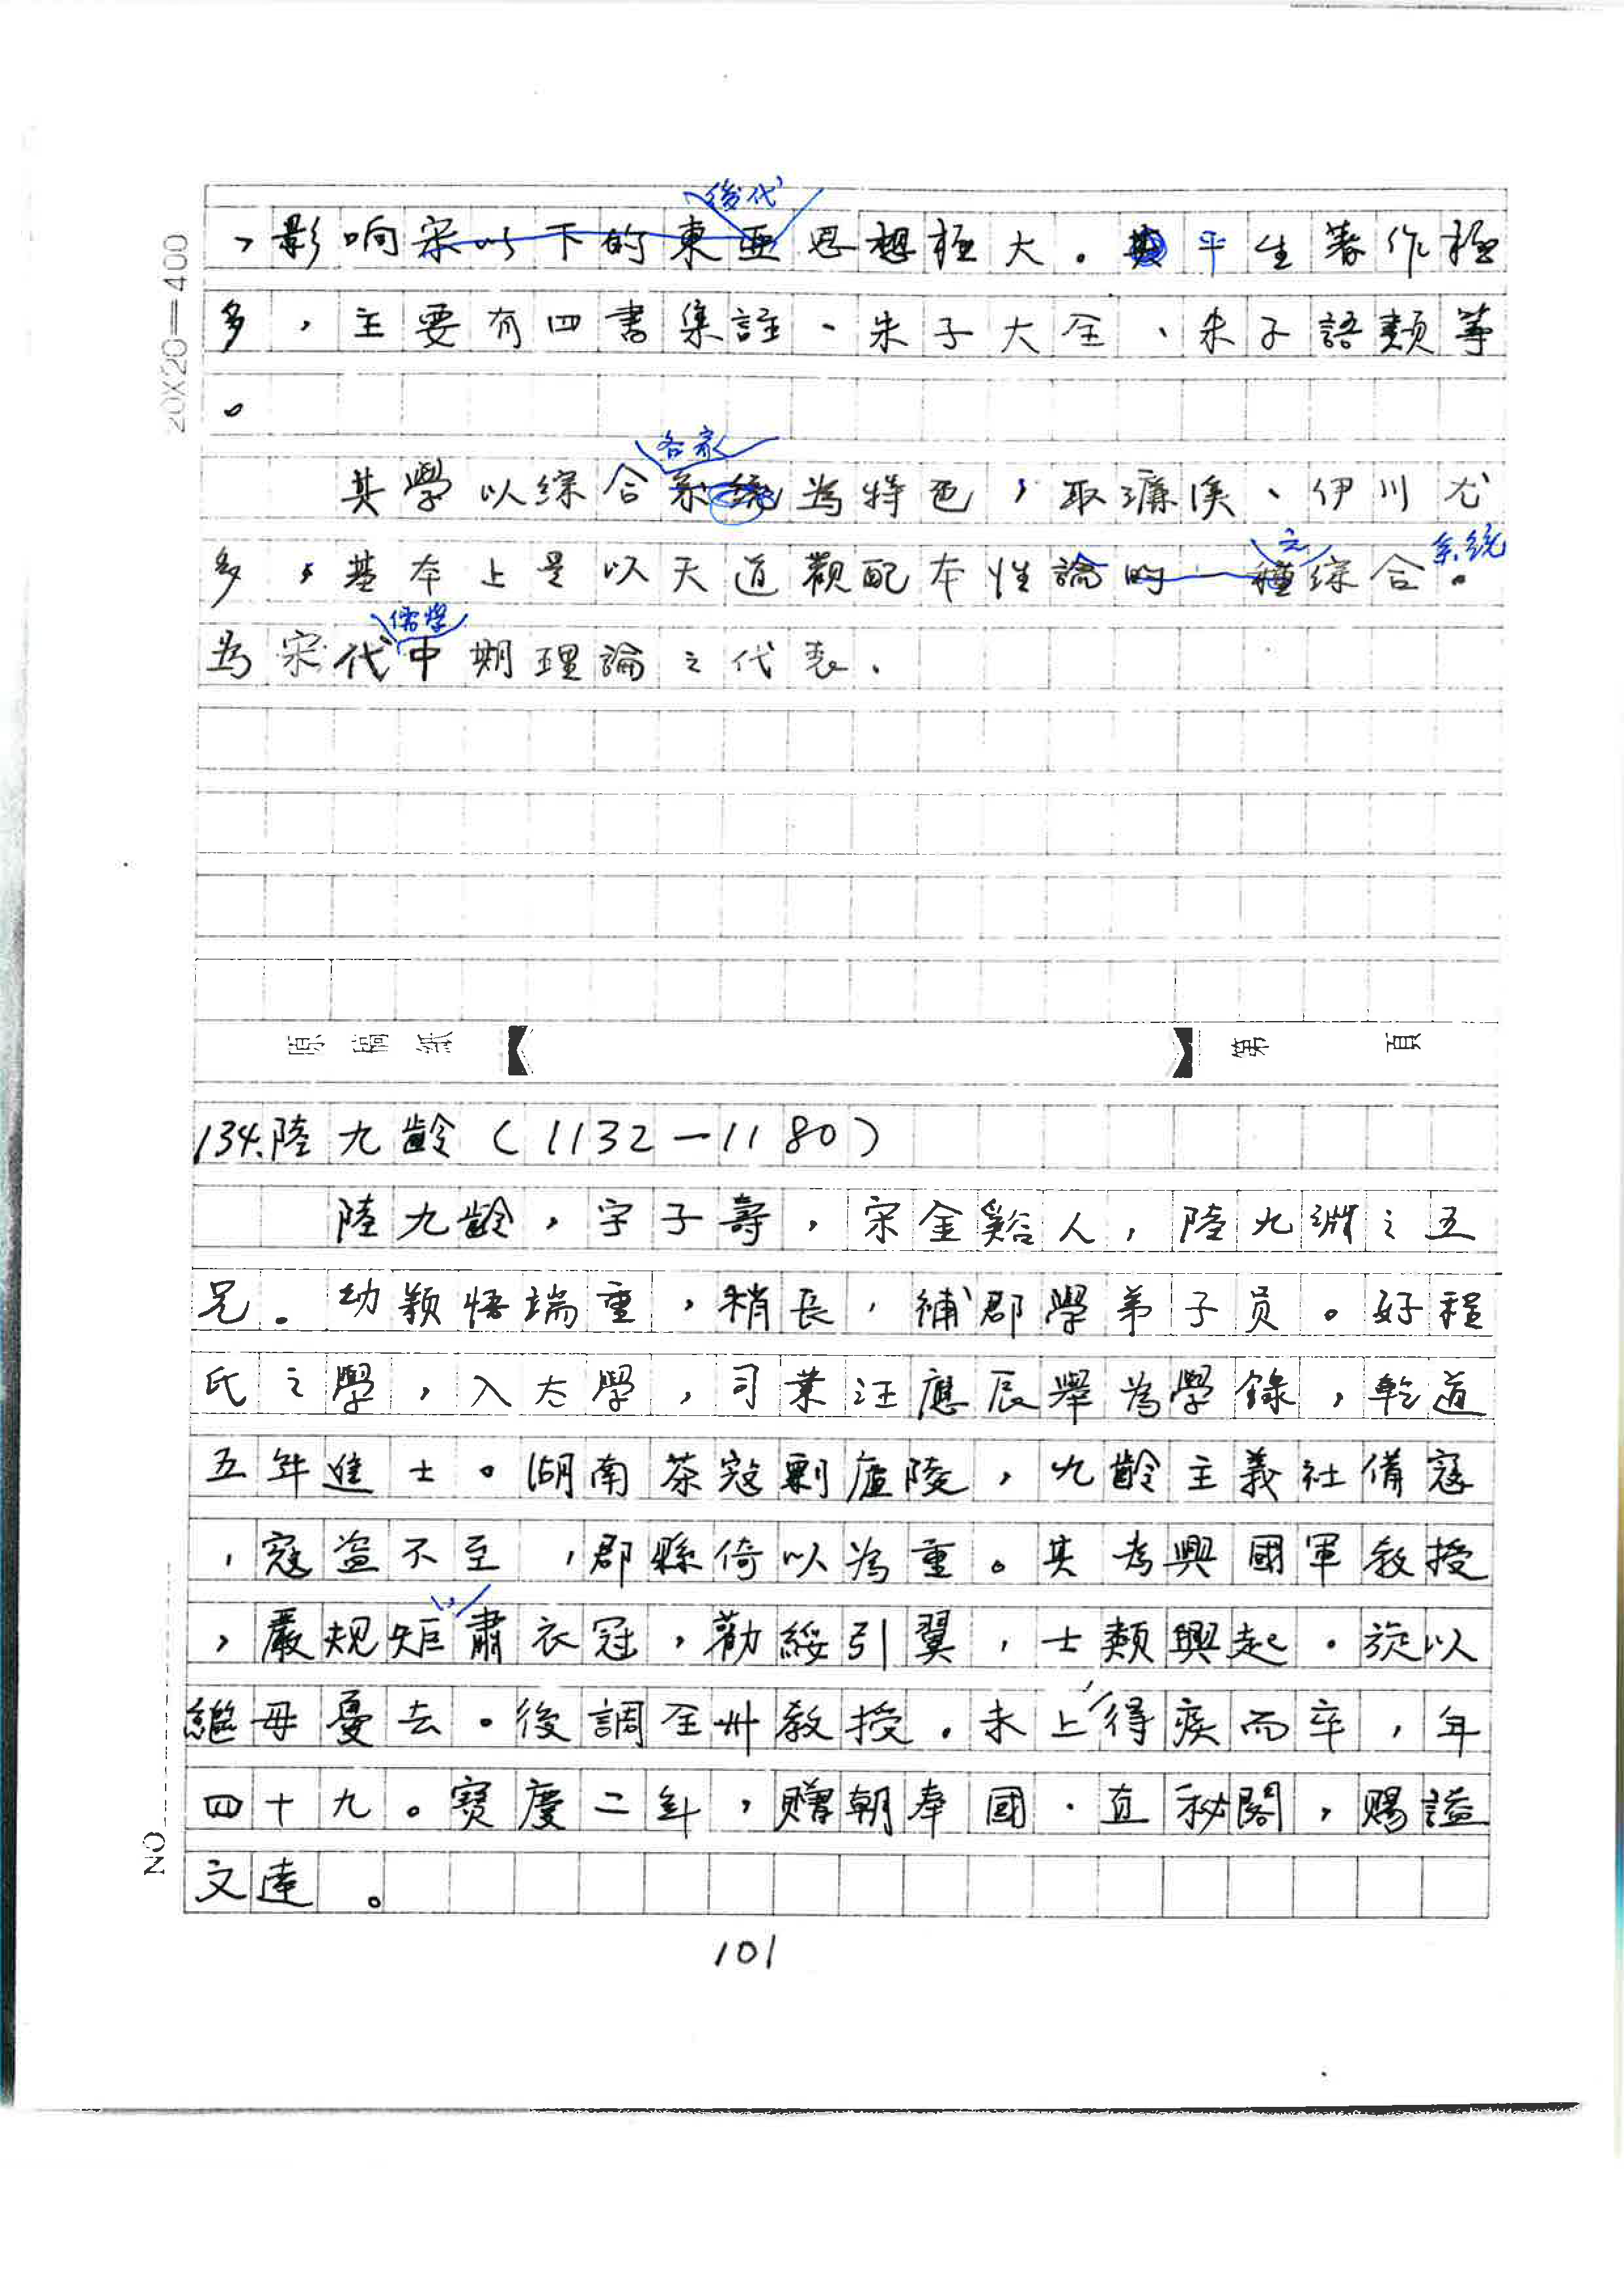 後代
，影响宋以下的東亞思想極大。其平生著作極
多，主要有四書集註、朱子大全、朱子語類等
。
各家
其學以綜合系統為特色，取濂溪、伊川尤
之 系統
多，基本上是以天道觀配本性論的一種綜合。
儒學
為宋代中期理論之代表。
原稿紙 第 頁
134.陸九齡(1132—1180)
陸九齡，字子壽，宋金谿人，陸九淵之五
兄。幼穎悟端重，稍長，補郡學弟子員。好程
氏之學，入太學，司業汪應辰舉為學錄，乾道
五年進士。湖南茶寇剽廬陵，九齡主義社備寇
，寇盜不至，郡縣倚以為重。其為興國軍教授
，嚴規矩、肅衣冠，勸綏引翼，士類興起。旋以
繼母憂去。後調全州教授。未上，得疾而卒，年
四十九。寶慶二年，贈朝奉國、直秘閣，賜謚
文達。
101
20X20=400
NO